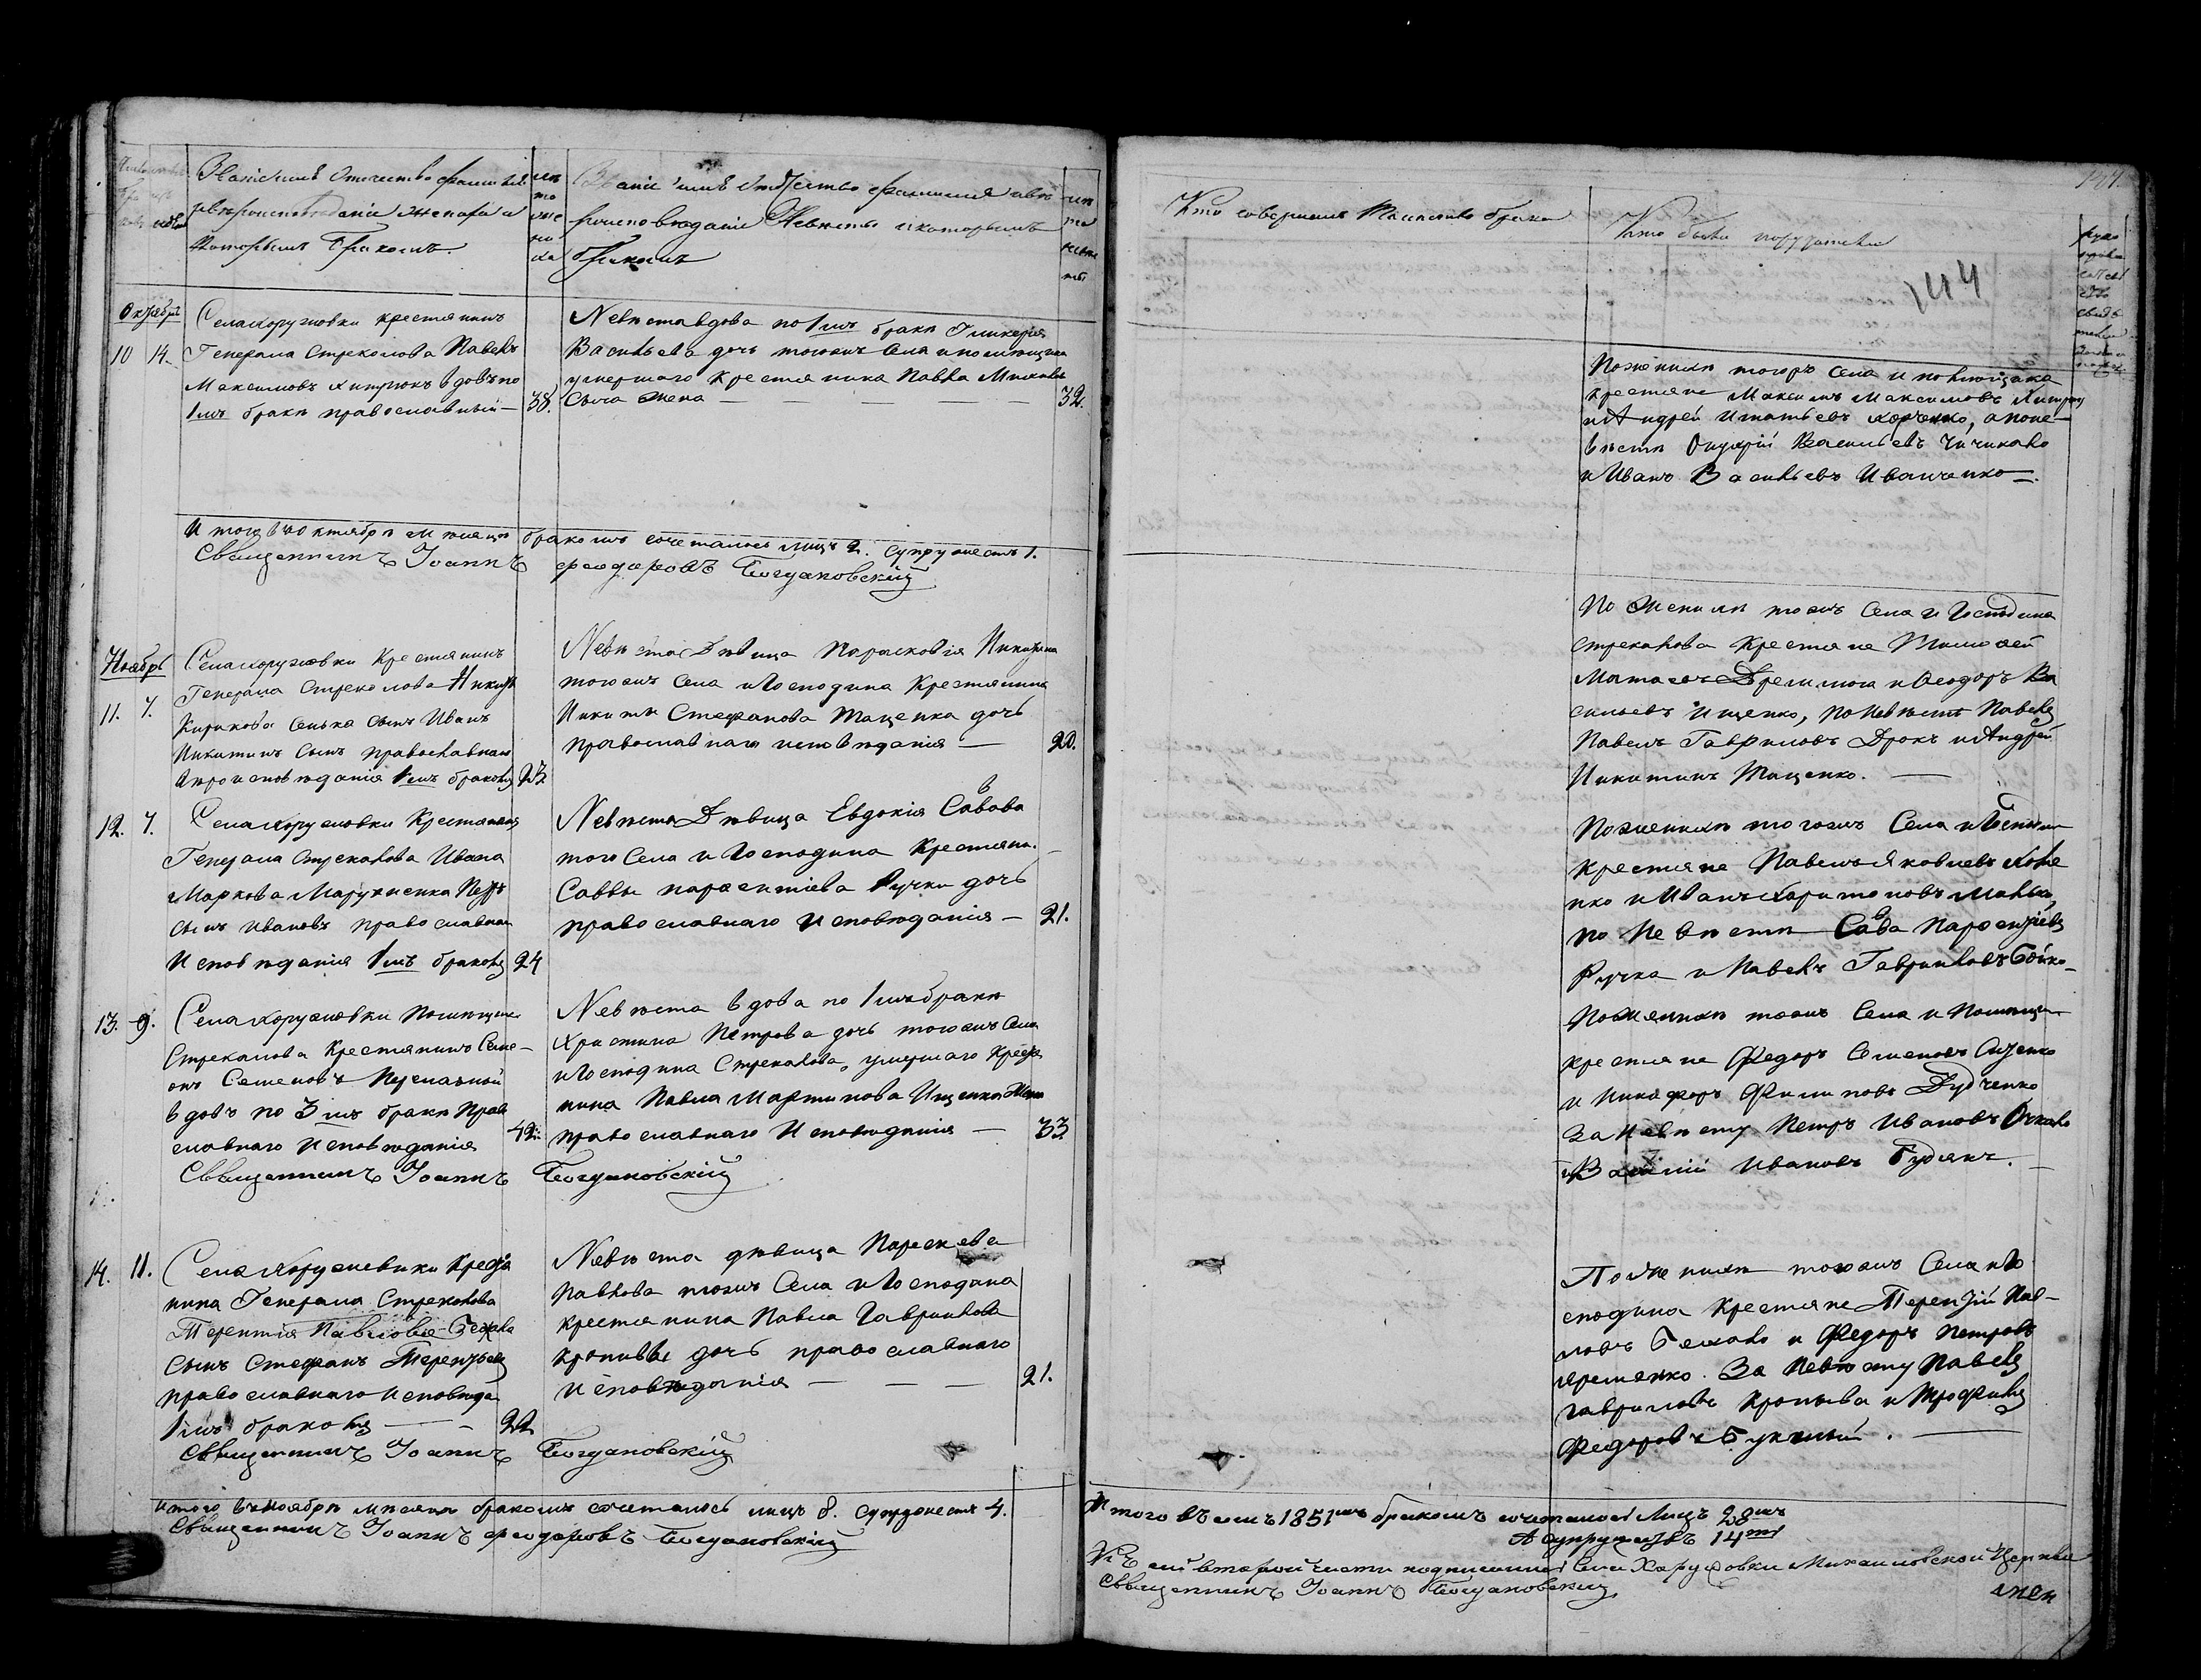 Званіе имя Отечество фамилія
и вѣроисповѣданіе жениха и
которымъ бракомъ.
Званіе имя Отечество фамилія и вѣ
роисповѣданіе Невѣсты и которымъ
бракомъ
Октябрь
10 14.
Села Хоружовки крестянинъ
Генерала Стрекалова Павелъ
Максимовъ Хитрюкъ вдовъ по
1мъ бракѣ православный — 38.
Невѣста вдова по 1мъ бракѣ Гликерія
Васильева дочь тогожъ Села и помѣщика
умершаго крестянина Павла
Сыча жена — — — — — 32.
Итого въ октябрѣ мѣсяцѣ бракомъ сочеталось лицъ 2. Супружествъ 1.
Священникъ Іоаннъ Феодоровъ Богдановскій
Ноябрь
11. 7.
Села Хоружовки Крестянинъ
Генерала Стрекалова Никиты
Кирикова Сенька сынъ Иванъ
Никитинъ сынъ православнаго
вѣроисповѣданія 1мъ бракомъ 23
Невѣста Дѣвица Парасковія Никитина
тогожъ Села и Господина Крестянина
Никиты Стефанова Таценка дочь
православнаго исповѣданія — 20.
12. 7.
Села Хоружовки Крестянина
Генерала Стрекалова Ивана
Маркова Марухненка Петръ
сынъ Ивановъ православнаго
Исповѣданія 1мъ бракомъ 24
Невѣста Дѣвица Евдокія Савова
того Села и Господина Крестяни.
Саввы Парфентіева Ручки дочь
православнаго Исповѣданія — 21.
13. 9.
Села Хоружовки Помѣщика
Стрекалова Крестянинъ Симе-
онъ Семеновъ
вдовъ по 3мъ бракѣ Право
славнаго Исповѣданія 42.
Невѣста вдова по 1мъ бракѣ
Христина Петрова дочь тогожъ Села
и Господина Стрекалова, умершаго Крестя
нина Павла Мартинова Ищенка Жена
православнаго Исповѣданія — 33
Священникъ Іоаннъ Богдановскій
14. 11.
Села Хоружевики Крестя
нина Генерала Стрекалова
Терентія Павлова
сынъ Стефанъ Терентьевъ
православнаго Исповѣда
1мъ бракомъ — — 22
Невѣста дѣвица Параскева
Павлова тогожъ Села и Господина
крестянина Павла Гаврилова
Кропивы дочь православнаго
Исповѣданія — — — 21.
Священникъ Іоаннъ Богдановскій
Итого въ Ноябрѣ мѣсяцѣ бракомъ сочеталось лицъ 8. Супружествъ 4.
Священникъ Іоаннъ Феодоровъ Богдановскій
Кто совершалъ Таинство брака
Кто были поручители
144
По женихѣ тогожъ села и помѣщика
крестяне Максимъ Максимовъ Хитрюкъ
и Андрей Игнатьевъ Харченко, а по не-
вѣстѣ Онуфрій Васильевъ Чичикало
и Иванъ Васильевъ Иванченко —.
По Женихѣ тогожъ Села и Господина
Стрекалова Крестяне Тимофей
Дремлюга и Феодоръ Ва
сильевъ Ищенко, по невѣстѣ Павелъ
Павелъ Гавриловъ Дрокъ и Андрей
Никитинъ Таценко. —
По женихѣ тогожъ Села и Господина
крестяне Павелъ Яковлевъ
нко и Иванъ Харитоновъ Манько,
по Невѣстѣ Савва Парфентіевъ
Ручка и Павелъ Гавриловъ Бойко —
По женихѣ тогожъ Села и Помѣщи
крестяне Федоръ Семеновъ
и Никифоръ Филиповъ Дудченко
За Невѣсту Петръ Ивановъ Очкало
и Василій Ивановъ Гудимъ. —
По женихѣ тогожъ Села и Го
сподина Крестяне Терентій Пав-
ловъ и Федоръ Петровъ
Яременко. За Невѣсту Павелъ
Гавриловъ Кропыва и Трофимъ
Федоровъ —
Итого въ семъ 1851мъ бракомъ сочеталось Лицъ 28мъ
А супружествъ 14ть
Къ сей второй части подписался Села Хоружовки Михаиловской Церкви
Священникъ Іоаннъ Богдановскій